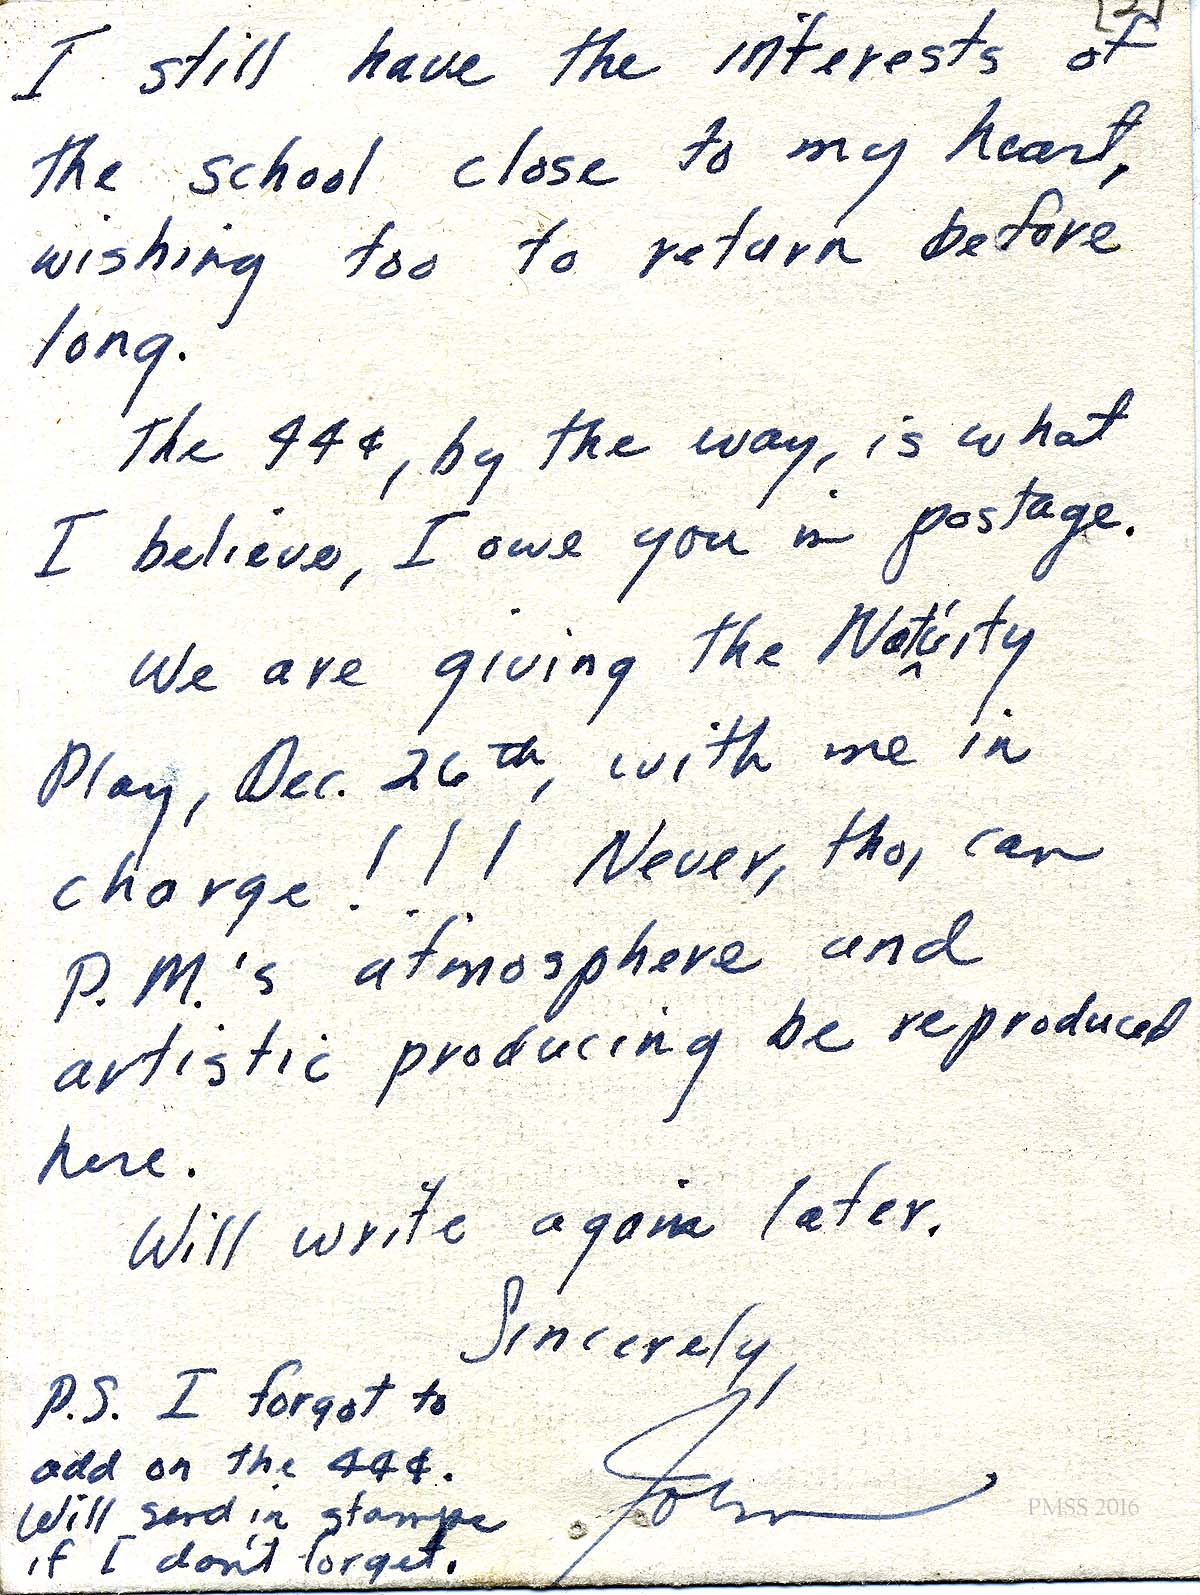 [2]
I still have the interests of
the school close to my heart,
wishing too to return before
long.
The 44¢, by the way, is what
I believe, I owe you in postage.
We are giving the Nativity
Play, Dec. 26th, with me in
charge!!! Never, tho, can
P.M.'s atmosphere and
artistic producing be reproduced
here.
Will write again later.
Sincerely,
John
P.S. I forgot to
add on the 44¢.
Will send in stamps
if I don't forget.
PMSS 2016